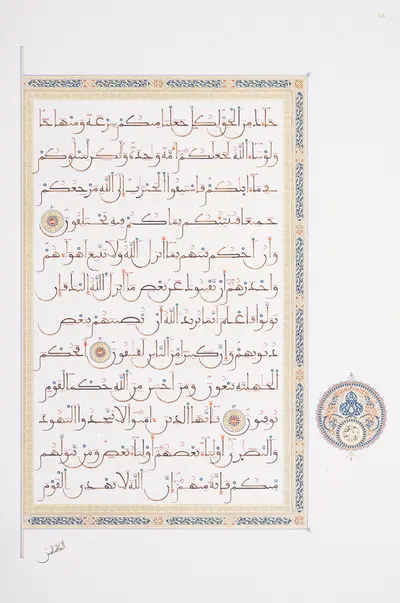 جاءك من الحق لكل جعلنا منكم شرعة ومنهاجا
ولو شاء الله لجعلكم أمة واحدة ولكن ليبلوكم
في ما ءاتيكم فاستبقوا الخيرات إلى الله مرجعكم
جميعا فينبئكم بما كنتم فيه تختلفون
وأن احكم بينهم بما أنزل الله ولا تتبع أهواءهم
واحذرهم أن يفتنوك عن بعض ما أنزل الله إليك فإن
تولوا فاعلم أنما يريد الله أن يصيبهم ببعض
ذنوبهم وإن كثيرا من الناس لفسقون أفحكم
الجهلية يبغون ومن أحسن من الله حكما لقوم
يوقنون يأيها الذين ءامنوا لا تتخذوا اليهود
والنصرى أولياء بعضهم أولياء بعض ومن يتولهم
منكم فإنه منهم إن الله لا يهدي القوم
الظلمين